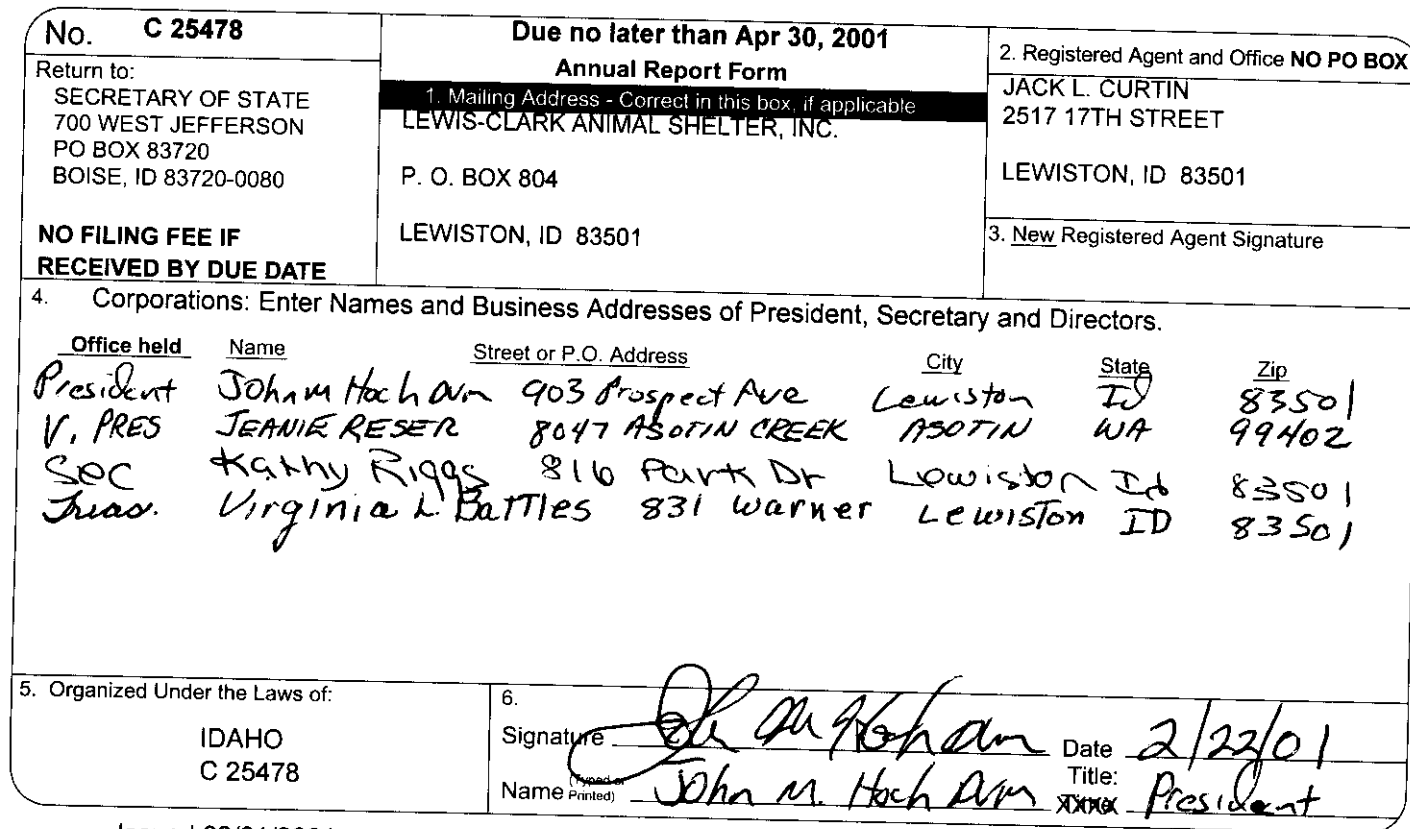 No. C 25478
Return to:
SECRETARY OF STATE
700 WEST JEFFERSON
PO BOX 83720
BOISE, ID 83720-0080
NO FILING FEE IF
RECEIVED BY DUE DATE
Due no later than Apr 30, 2001
Annual Report Form
1. Mailing Address - Correct in this box, if applicable
LEWIS-CLARK ANIMAL SHELTER, INC.
P. O. BOX 804
LEWISTON, ID 83501
2. Registered Agent and Office NO PO BOX
JACK L. CURTIN
2517 17TH STREET
LEWISTON, ID 83501
3. New Registered Agent Signature
4. Corporations: Enter Names and Business Addresses of President, Secretary and Directors.
Office held Name Street or P.O. Address City State Zip
President John M Hoch 903 Prospect Ave Lewiston Id 83501
V. PRES JEANIE RESER 8047 ASOTIN CREEK ASOTIN WA 99402
Sec Kathy Riggs 816 Park Dr Lewiston Id 83501
Treas. Virginia L. Battles 831 Warner Lewiston ID 83501
5. Organized Under the Laws of:
IDAHO
C 25478
6.
Signature Date 2/22/01
Name (Typed or Printed) John M. Hoch Title: President